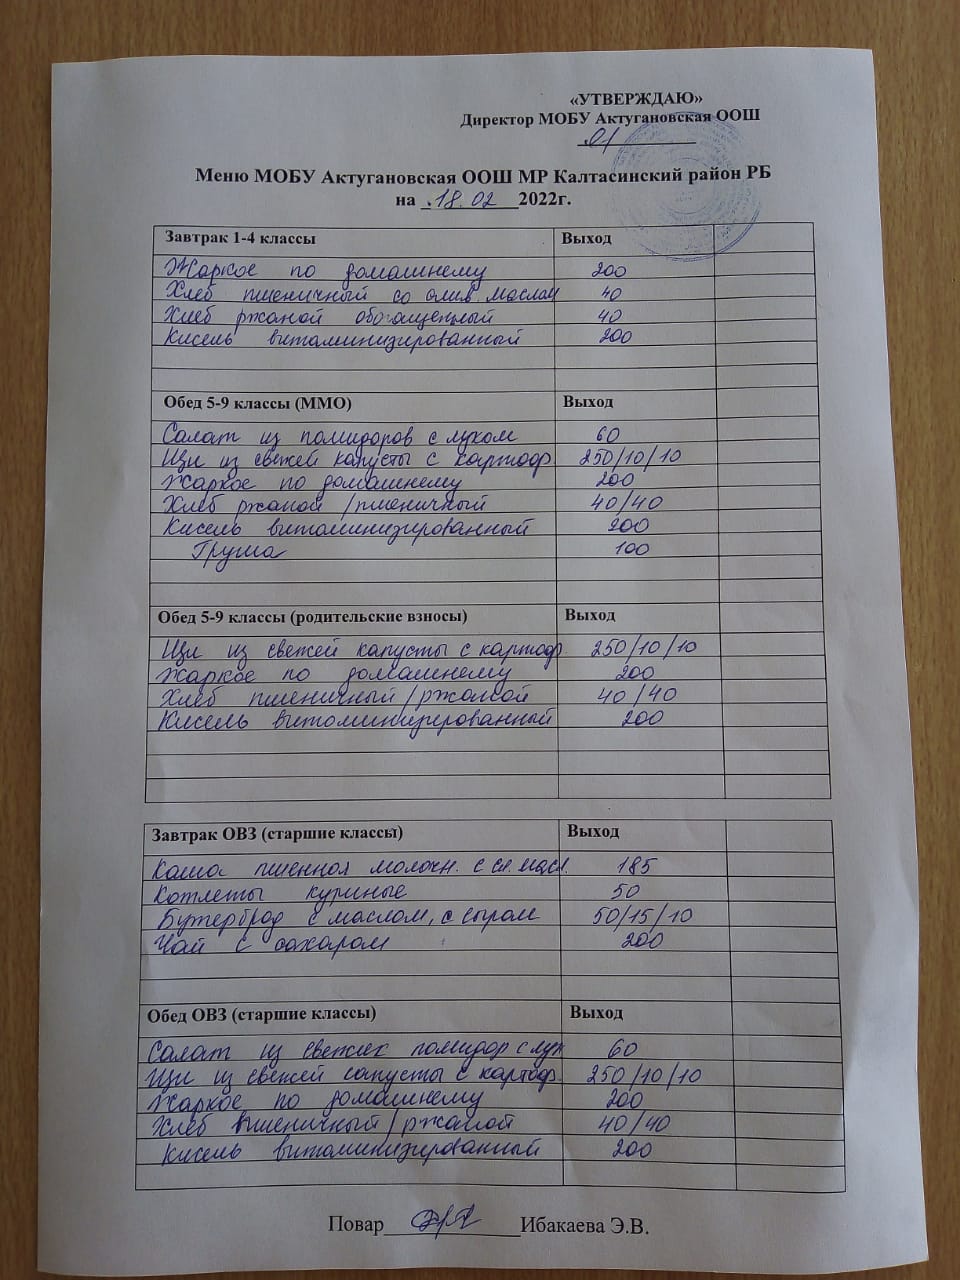 «УТВЕРЖДАЮ»
Директор МОБУ Актугановская ООШ
Меню МОБУ Актугановская ООШ МР Калтасинский район РБ
на 18.02 2022г.
Завтрак 1-4 классы Выход
Жаркое по домашнему 200
Хлеб пшеничный со слив. маслом 40
Хлеб ржаной обогащенный 40
Кисель витаминизированный 200
Обед 5-9 классы (ММО) Выход
Салат из помидоров с луком 60
Щи из свежей капусты с картоф 250/10/10
Жаркое по домашнему 200
Хлеб ржаной /пшеничный 40/40
Кисель витаминизированный 200
Груша 100
Обед 5-9 классы (родительские взносы) Выход
Щи из свежей капусты с картоф 250/10/10
Жаркое по домашнему 200
Хлеб пшеничный/ржаной 40/40
Кисель витаминизированный 200
Завтрак ОВЗ (старшие классы) Выход
Каша пшенная молочн. с сл. масл. 185
Котлеты куриные 50
Бутерброд с маслом, с сыром 50/15/10
Чай с сахаром 200
Обед ОВЗ (старшие классы) Выход
Салат из свежих помидор с лук 60
Щи из свежей капусты с картоф. 250/10/10
Жаркое по домашнему 200
Хлеб пшеничный/ржаной 40/40
Кисель витаминизированный 200
Повар Ибакаева Э.В.